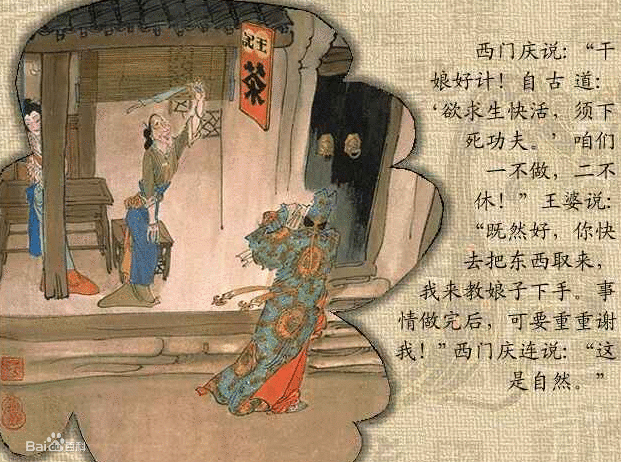 王記
茶
西门庆说：“干
娘好计！自古道：
‘欲求生快活，须下
死功夫。’咱们
一不做，二不
休！”王婆说：
“既然好，你快
去把东西取来，
我来教娘子下手。事
情做完后，可要重重谢
我！”西门庆连说：“这
是自然。”
Bai百科